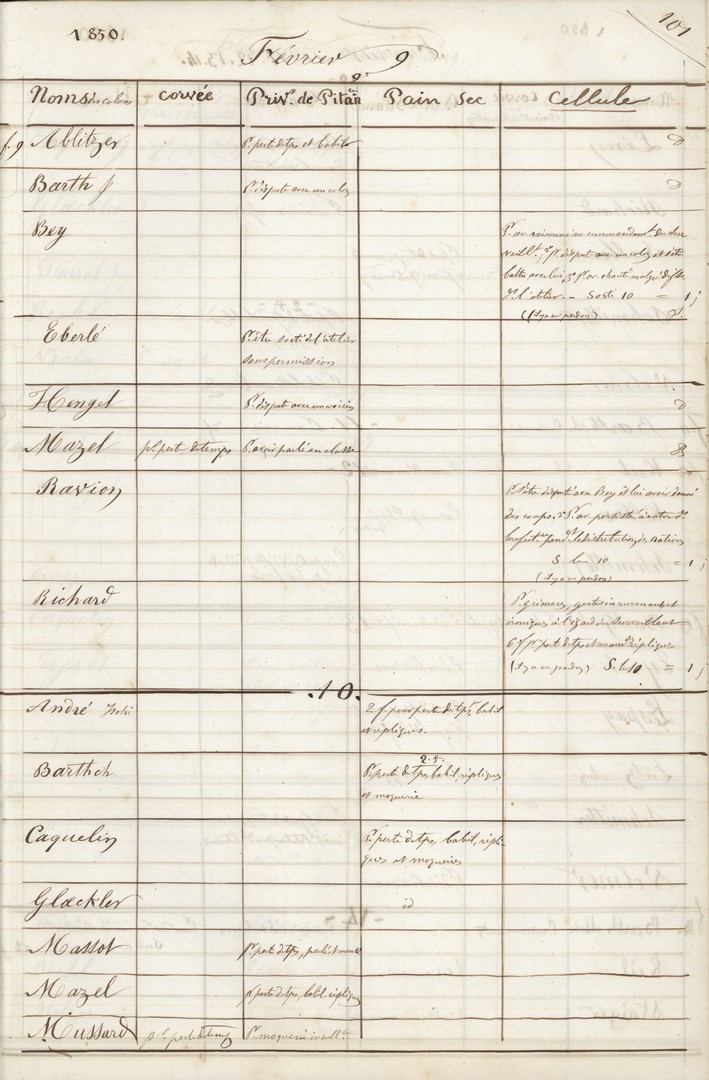 1850.
101
Février 9
Noms des colons corvée Priv.on de Pitan Pain Sec Cellule
f. 9 Ablitzer pr. perte de tps et babil
Barth pr. dispute avec un colon
Bey pr. av. raisonné au commandemt. du Sur
veillt.; 2° pr. disput. avec un colon et s'être
battu avec lui, 3° pr. av. chanté malgré
de l'atelier. — Sorti 10 = 1 j
(il y a eu pardon)
Eberlé pr. être sorti de l'atelier
sans permission
Hengel pr. dispute avec un voisin
Mazel pr. perte de temps pr. avoir parlé en classe
Ravion pr. s'être disputé avec Bey et lui avoir donné
des coups. 2° pr. av. persisté
pendt. la distribution des rations
S. le 10 = 1 j
(il y a eu pardon)
Richard pr. grimaces, gestes inconvenants et
ironiques à l'égard du Surveillant
6 f. pr. perte de tps et mauv. répliques
(il y a eu pardon) S. le 10 = 1 j
. 10.
André 2 f. pour perte de tps, babil
et répliques.
Bartholi 2. f.
pr. perte de tps, babil, répliques
et moquerie
Caquelin pr. perte de tps, babil, répli-
ques et moqueries
Glœckler id
Massot pr. perte de tps, parlé et menti
Mazel pr. perte de tps, babil, répliques
Mussard pr. perte de temps pr. moquerie